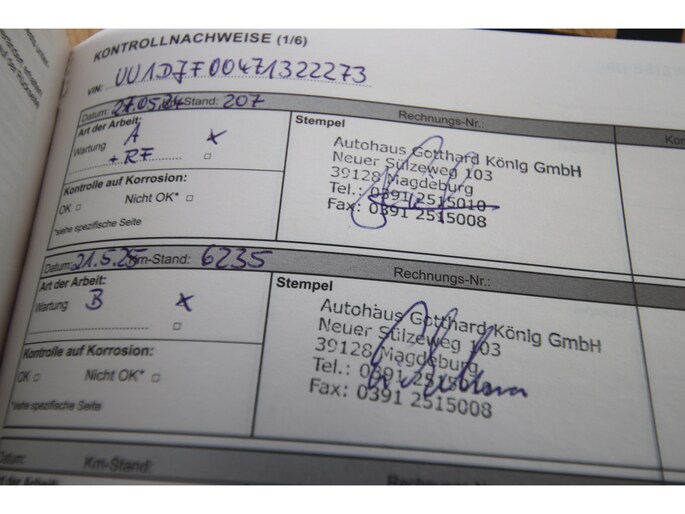 KONTROLLNACHWEISE (1/6)
VIN: UU1DJF00471322273
Datum: 27.05.24 Km-Stand: 207 Rechnungs-Nr.:
Art der Arbeit: A
Wartung x
+ RF
Kontrolle auf Korrosion:
OK Nicht OK*
*siehe spezifische Seite
Stempel
Autohaus Gotthard König GmbH
Neuer Sülzeweg 103
39128 Magdeburg
Tel.: 0391 2515010
Fax: 0391 2515008
Datum: 21.5.25 Km-Stand: 6235 Rechnungs-Nr.:
Art der Arbeit:
Wartung B x
Kontrolle auf Korrosion:
OK Nicht OK*
*siehe spezifische Seite
Stempel
Autohaus Gotthard König GmbH
Neuer Sülzeweg 103
39128 Magdeburg
Tel.: 0391 2515010
Fax: 0391 2515008
Datum: Km-Stand: